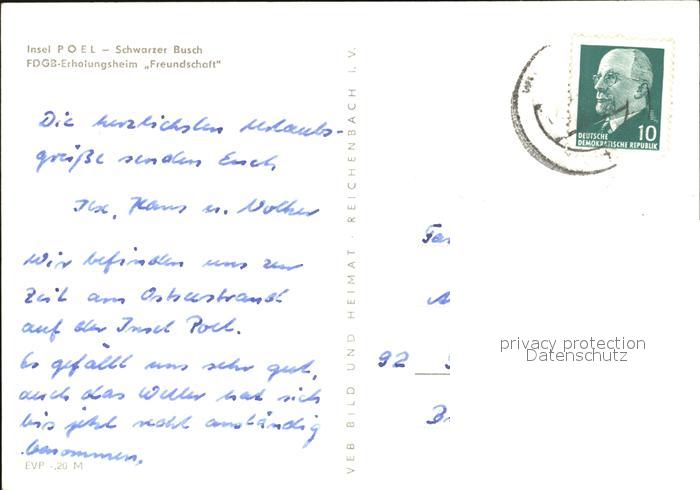 Insel POEL – Schwarzer Busch
FDGB-Erholungsheim „Freundschaft"
Die herzlichsten Urlaubs-
grüße senden Euch
Ilse, Hans u. Volker
Wir befinden uns zur
Zeit am Ostseestrand
auf der Insel Poel.
Es gefällt uns sehr gut,
auch das Wetter hat sich
bis jetzt recht anständig
benommen.
EVP -,20 M
VEB BILD UND HEIMAT · REICHENBACH I. V.
10
DEUTSCHE
DEMOKRATISCHE REPUBLIK
Fa
92
privacy protection
Datenschutz